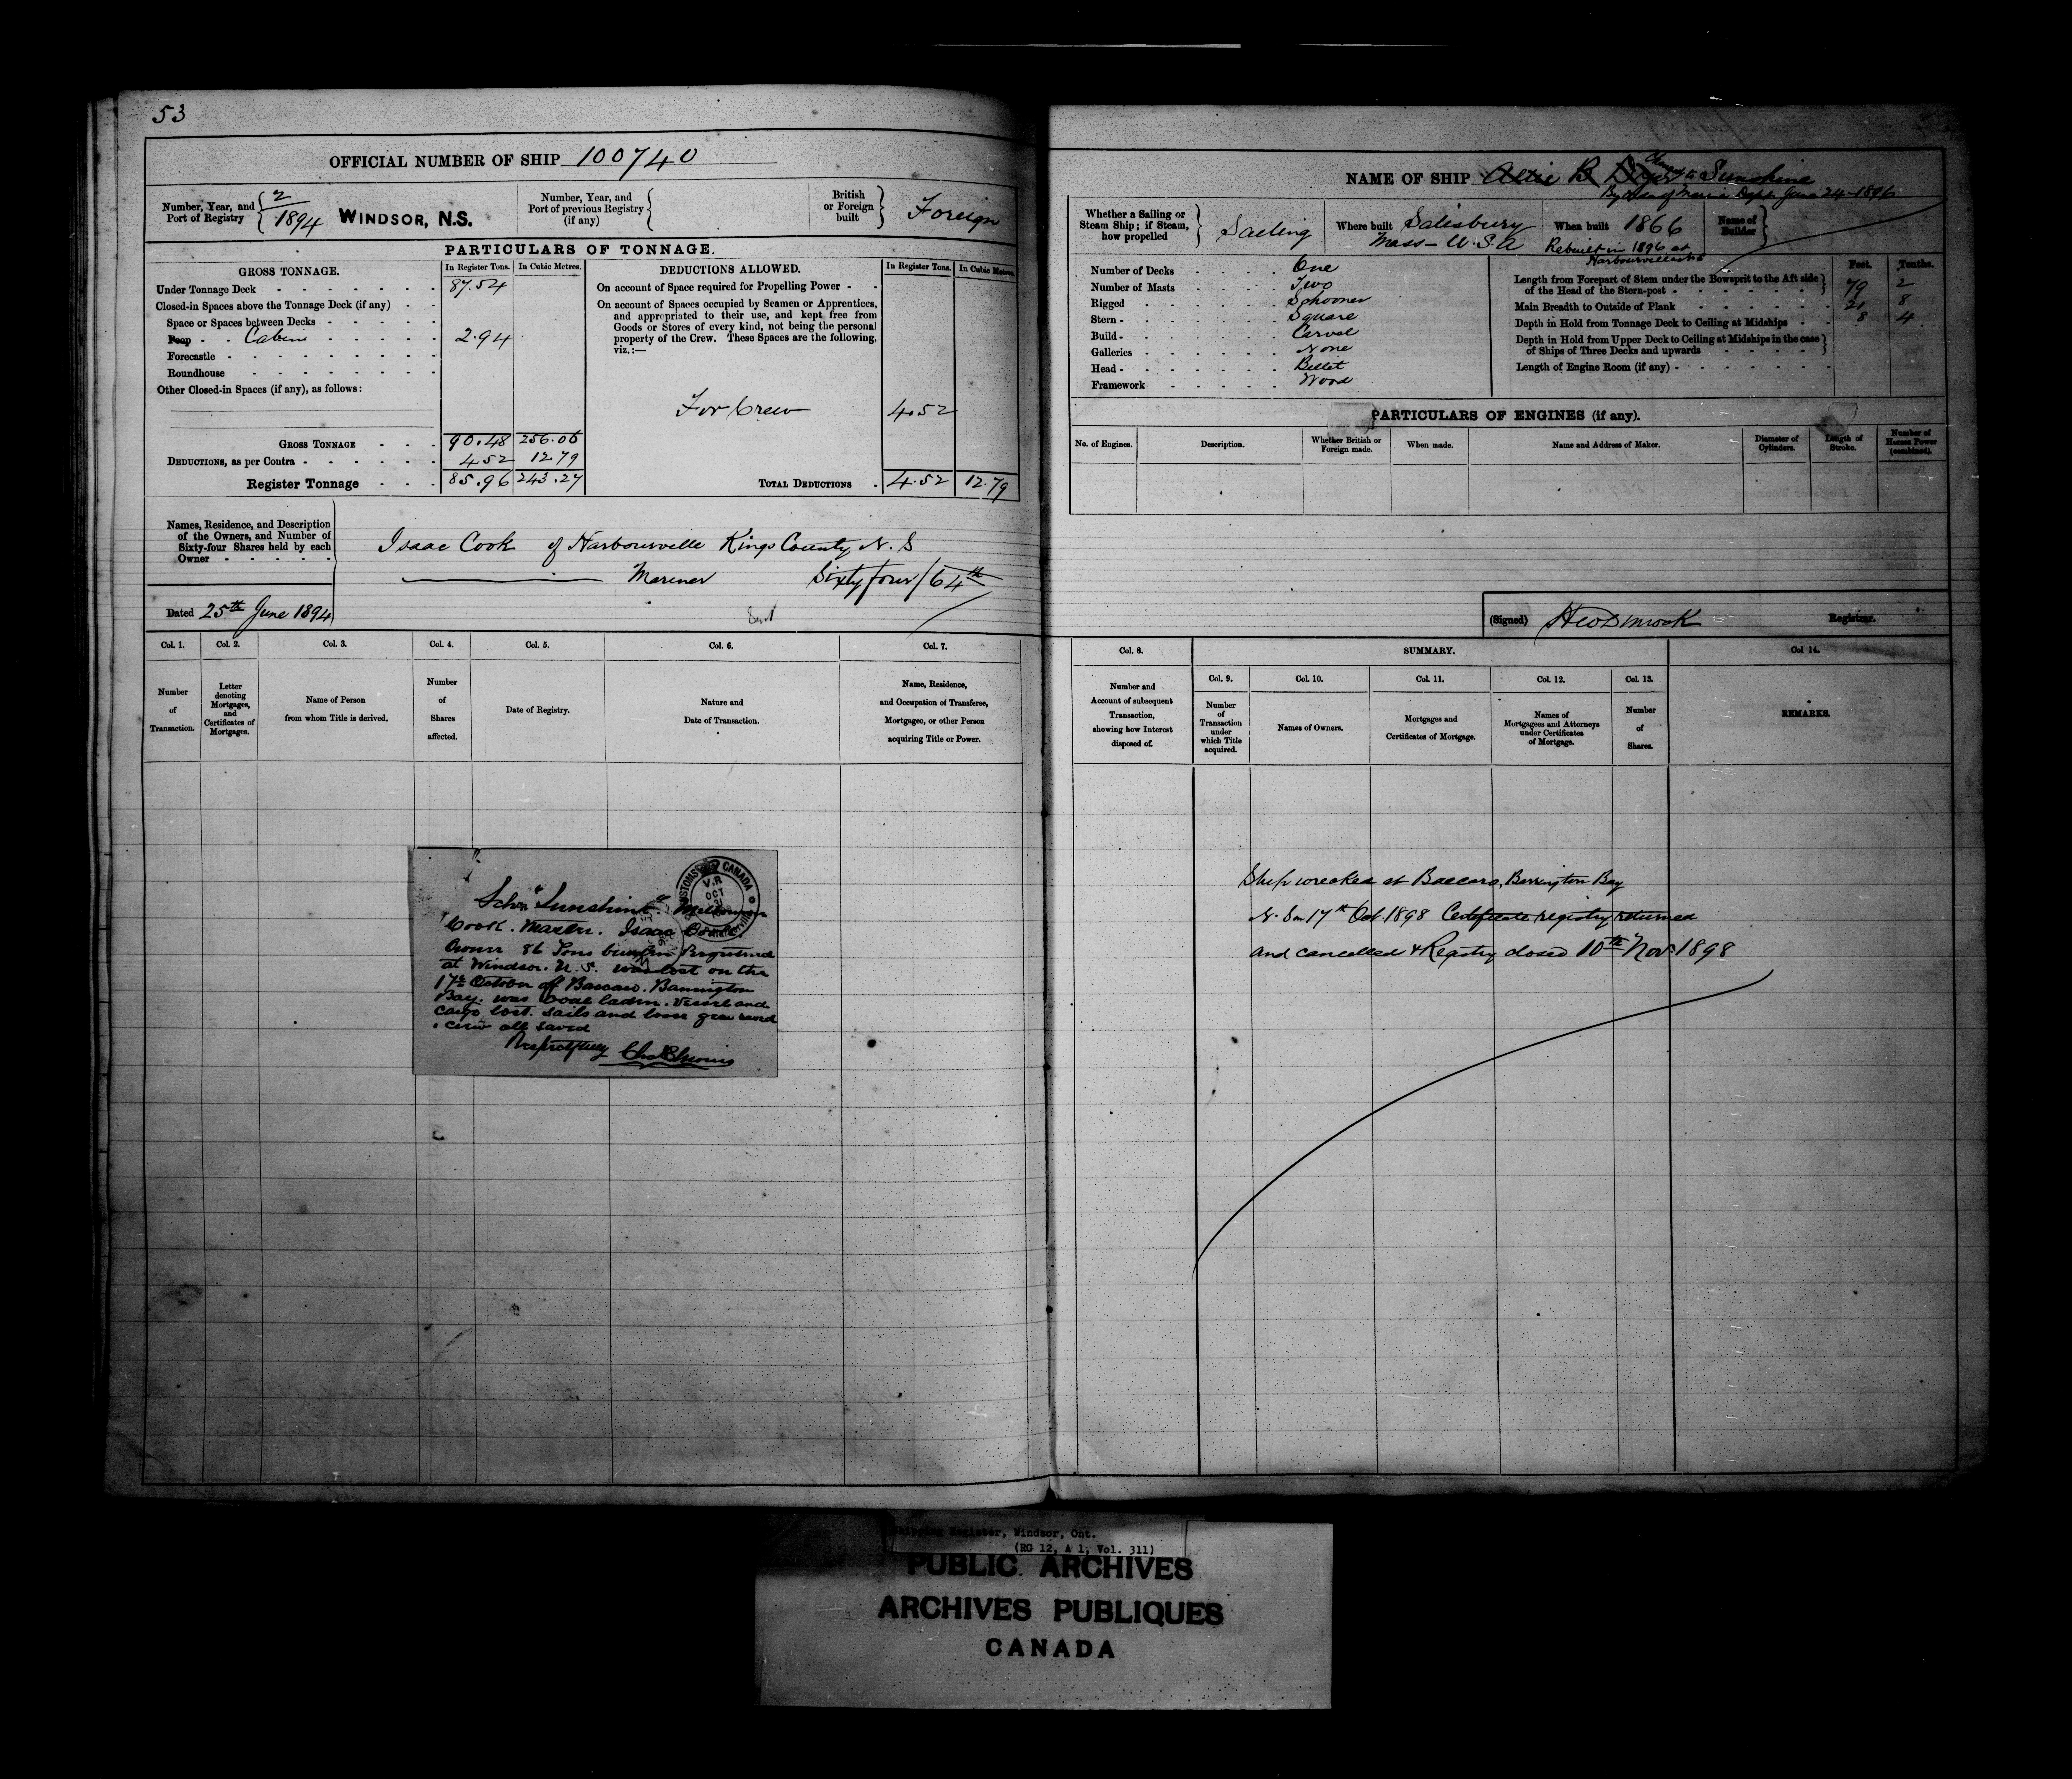 53
OFFICIAL NUMBER OF SHIP 100740
Number, Year, and Port of Registry 2/1894 WINDSOR, N.S.
Number, Year, and Port of previous Registry (if any)
British or Foreign built Foreign
PARTICULARS OF TONNAGE.
GROSS TONNAGE. In Register Tons. In Cubic Metres.
Under Tonnage Deck 87.54
Closed-in Spaces above the Tonnage Deck (if any)
Space or Spaces between Decks
Poop Cabin 2.94
Forecastle
Roundhouse
Other Closed-in Spaces (if any), as follows:
GROSS TONNAGE 90.48 256.06
DEDUCTIONS, as per Contra 4.52 12.79
Register Tonnage 85.96 243.27
DEDUCTIONS ALLOWED. In Register Tons. In Cubic Metres.
On account of Space required for Propelling Power
On account of Spaces occupied by Seamen or Apprentices,
and appropriated to their use, and kept free from
Goods or Stores of every kind, not being the personal
property of the Crew. These Spaces are the following,
viz.:—
For Crew 4.52
TOTAL DEDUCTIONS 4.52 12.79
Names, Residence, and Description
of the Owners, and Number of
Sixty-four Shares held by each
Owner
Isaac Cook of Harbourville Kings County N. S
Mariner Sixty four/64th
Dated 25th June 1894
Col. 1. Col. 2. Col. 3. Col. 4. Col. 5. Col. 6. Col. 7.
Number of Transaction.
Letter denoting Mortgages, and Certificates of Mortgages.
Name of Person from whom Title is derived.
Number of Shares affected.
Date of Registry.
Nature and Date of Transaction.
Name, Residence, and Occupation of Transferee, Mortgagee, or other Person acquiring Title or Power.
CUSTOMS CANADA
V.R
OCT
21
Schr "Sunshine"
Cook. Master. Isaac Cook.
Owner 86 Tons Registered
at Windsor. N. S. was lost on the
17th October off Baccaro. Barrington
Bay. was coal laden. Vessel and
cargo lost. sails and loose gear saved
crew all saved
Respectfully
NAME OF SHIP Altie B Changed to Sunshine
June 24-1896
Whether a Sailing or Steam Ship; if Steam, how propelled Sailing
Where built Salisbury Mass- U.S.A
When built 1866
Rebuilt in 1896 at
Harbourville N.S
Name of Builder
Number of Decks One
Number of Masts Two
Rigged Schooner
Stern Square
Build Carvel
Galleries None
Head Billet
Framework Wood
Feet. Tenths.
Length from Forepart of Stem under the Bowsprit to the Aft side of the Head of the Stern-post 79 2
Main Breadth to Outside of Plank 21 8
Depth in Hold from Tonnage Deck to Ceiling at Midships 8 4
Depth in Hold from Upper Deck to Ceiling at Midships in the case of Ships of Three Decks and upwards
Length of Engine Room (if any)
PARTICULARS OF ENGINES (if any).
No. of Engines. Description. Whether British or Foreign made. When made. Name and Address of Maker. Diameter of Cylinders. Length of Stroke. Number of Horses Power (combined).
(Signed) Registrar.
Col. 8. SUMMARY. Col 14.
Number and Account of subsequent Transaction, showing how Interest disposed of.
Col. 9. Col. 10. Col. 11. Col. 12. Col. 13.
Number of Transaction under which Title acquired.
Names of Owners.
Mortgages and Certificates of Mortgage.
Names of Mortgagees and Attorneys under Certificates of Mortgage.
Number of Shares.
REMARKS.
Ship wrecked at Baccaro, Barrington Bay
N. S on 17th Oct. 1898 Certificate registry returned
and cancelled & Registry closed 10th Nov 1898
Shipping Register, Windsor, Ont.
(RG 12, A 1, Vol. 311)
PUBLIC ARCHIVES
ARCHIVES PUBLIQUES
CANADA